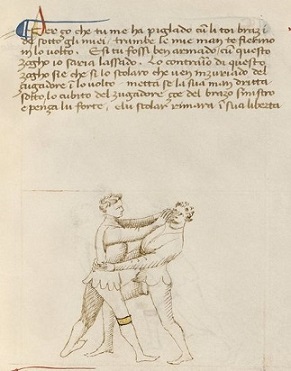 Per ço che tu me ha pigliado cum li toi brazi
de sotto gli miei, trambe le mie man te fieirino
in lo volto. E si tu fossi ben armado cum questo
zogho io saria lassado. Lo contrario di questo
zogho sie che si lo scolaro che ven inzuriado del
zugadore in lo volto, metta la sua man dritta
sotto lo cubito del zugadore çoe del brazo sinistro
e penza lu forte, e lu scolar rimarà in sua liberta